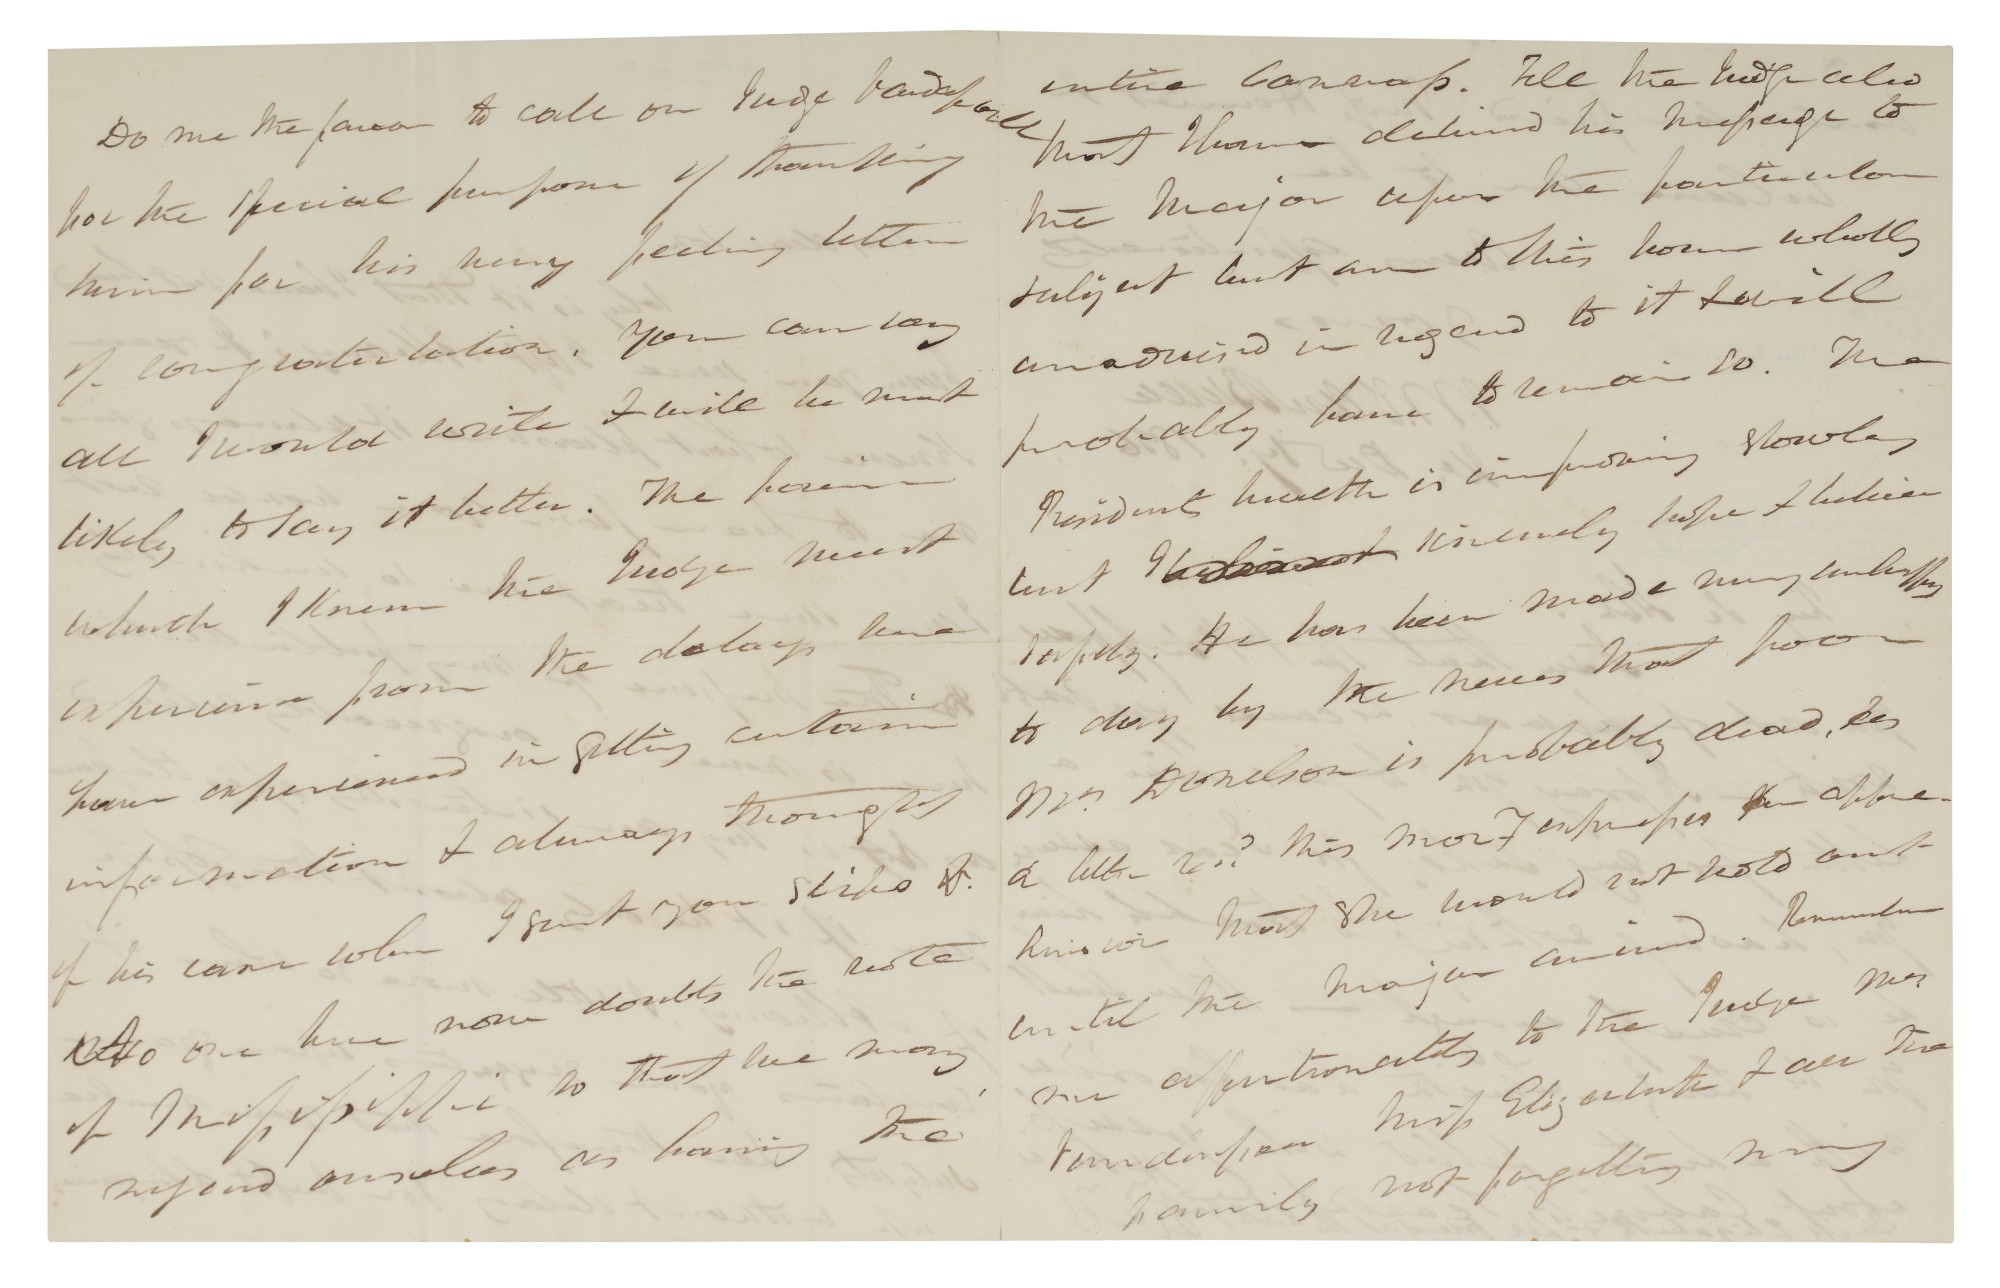 Do me the favor to call on Judge Vanderpoel
for the special purpose of thanking
him for his very feeling letter
of congratulation. You can say
all I would write & will be most
likely to say it better. The pain
which I know the Judge must
experience from the delays we
have experienced in getting certain
information I always thought
of his case when I sent you slips &.
No one here now doubts the vote
of Mississippi so that we may
regard ourselves as having the
entire Canvass. Tell the Judge also
that I have delivered his message to
the Major upon the particular
subject but am to this hour wholly
unadvised in regard to it & will
probably have to remain so. The
Presidents health is improving slowly
but I sincerely hope & believe
safely. He has been made very unhappy
to day by the news that poor
Mrs. Donelson is probably dead, as
a letter recd this mor'g expresses an appre-
hension that she would not hold out
until the Major arrived. Remember
me affectionately to the Judge Mrs
Vanderpoel Miss Elizabeth & all the
family not forgetting my